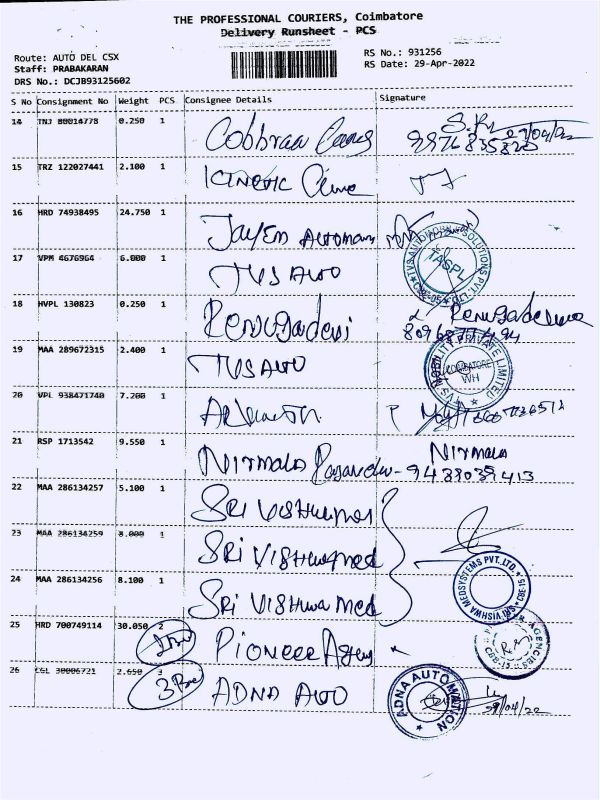 THE PROFESSIONAL COURIERS, Coimbatore
Delivery Runsheet - PCS
Route: AUTO DEL CSX
Staff: PRABAKARAN
DRS No.: DCJB93125602
RS No.: 931256
RS Date: 29-Apr-2022
S No Consignment No Weight PCS Consignee Details Signature
14 TNJ 80014778 0.250 1
9976835820
15 TRZ 122027441 2.100 1 KINETIC
16 HRD 74938495 24.750 1 JAYEM AUTOMAM
17 VPM 4676964 6.000 1 TVS AUTO
TASPL
18 HVPL 130823 0.250 1 Renugadevi Renugadevi
19 MAA 289672315 2.400 1 TVS AUTO
TVS MOBILITY PRIVATE LIMITED COIMBATORE WH
20 VPL 938471740 7.200 1
21 RSP 1713542 9.550 1 Nirmala Nirmala
9488039413
22 MAA 286134257 5.100 1 SRI VISHWA MED
23 MAA 286134259 8.000 1 SRI VISHWA MED
24 MAA 286134256 8.100 1 SRI VISHWA MED
SRI VISHWA MEDSYSTEMS PVT.LTD.
25 HRD 700749114 30.050 2 Pioneer Agency
26 CGL 30006721 2.650 3 ADNA AUTO
ADNA AUTOMATION
29/04/22